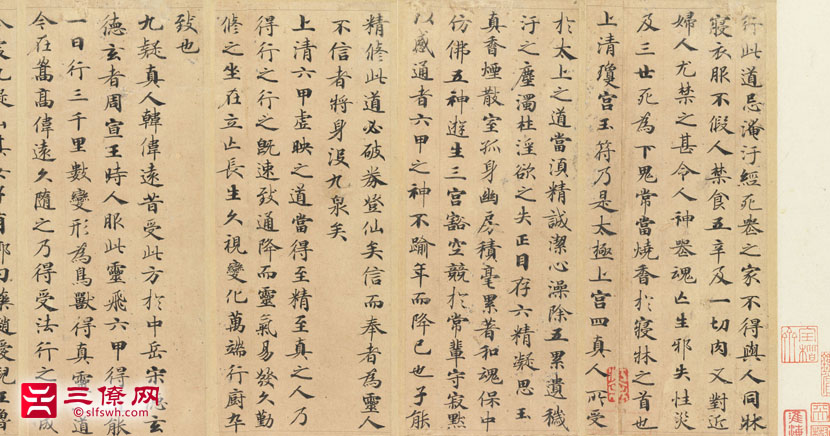 行此道忌淹汙經死喪之家不得與人同牀
寢衣服不假人禁食五辛及一切肉又對近
婦人尤禁之甚令人神喪魂亡生邪失性災
及三世死為下鬼常當燒香於寢牀之首也
上清瓊宮玉符乃是太極上宮四真人所受
於太上之道當須精誠潔心澡除五累遺穢
汙之塵濁杜淫欲之失正目存六精凝思玉
真香煙散室孤身幽房積毫累著和魂保中
仿佛五神遊生三宮豁空競於常輩守寂默
以感通者六甲之神不踰年而降已也子能
精修此道必破券登仙矣信而奉者為靈人
不信者將身沒九泉矣
上清六甲虛映之道當得至精至真之人乃
得行之行之既速致通降而靈氣易發久勤
修之坐在立亡長生久視變化萬端行廚卒
致也
九疑真人韓偉遠昔受此方於中岳宋德玄
德玄者周宣王時人服此靈飛六甲得能
一日行三千里數變形為鳥獸得真靈道
今在嵩高偉遠久隨之乃得受法行之成
三僚网
slfswh.com